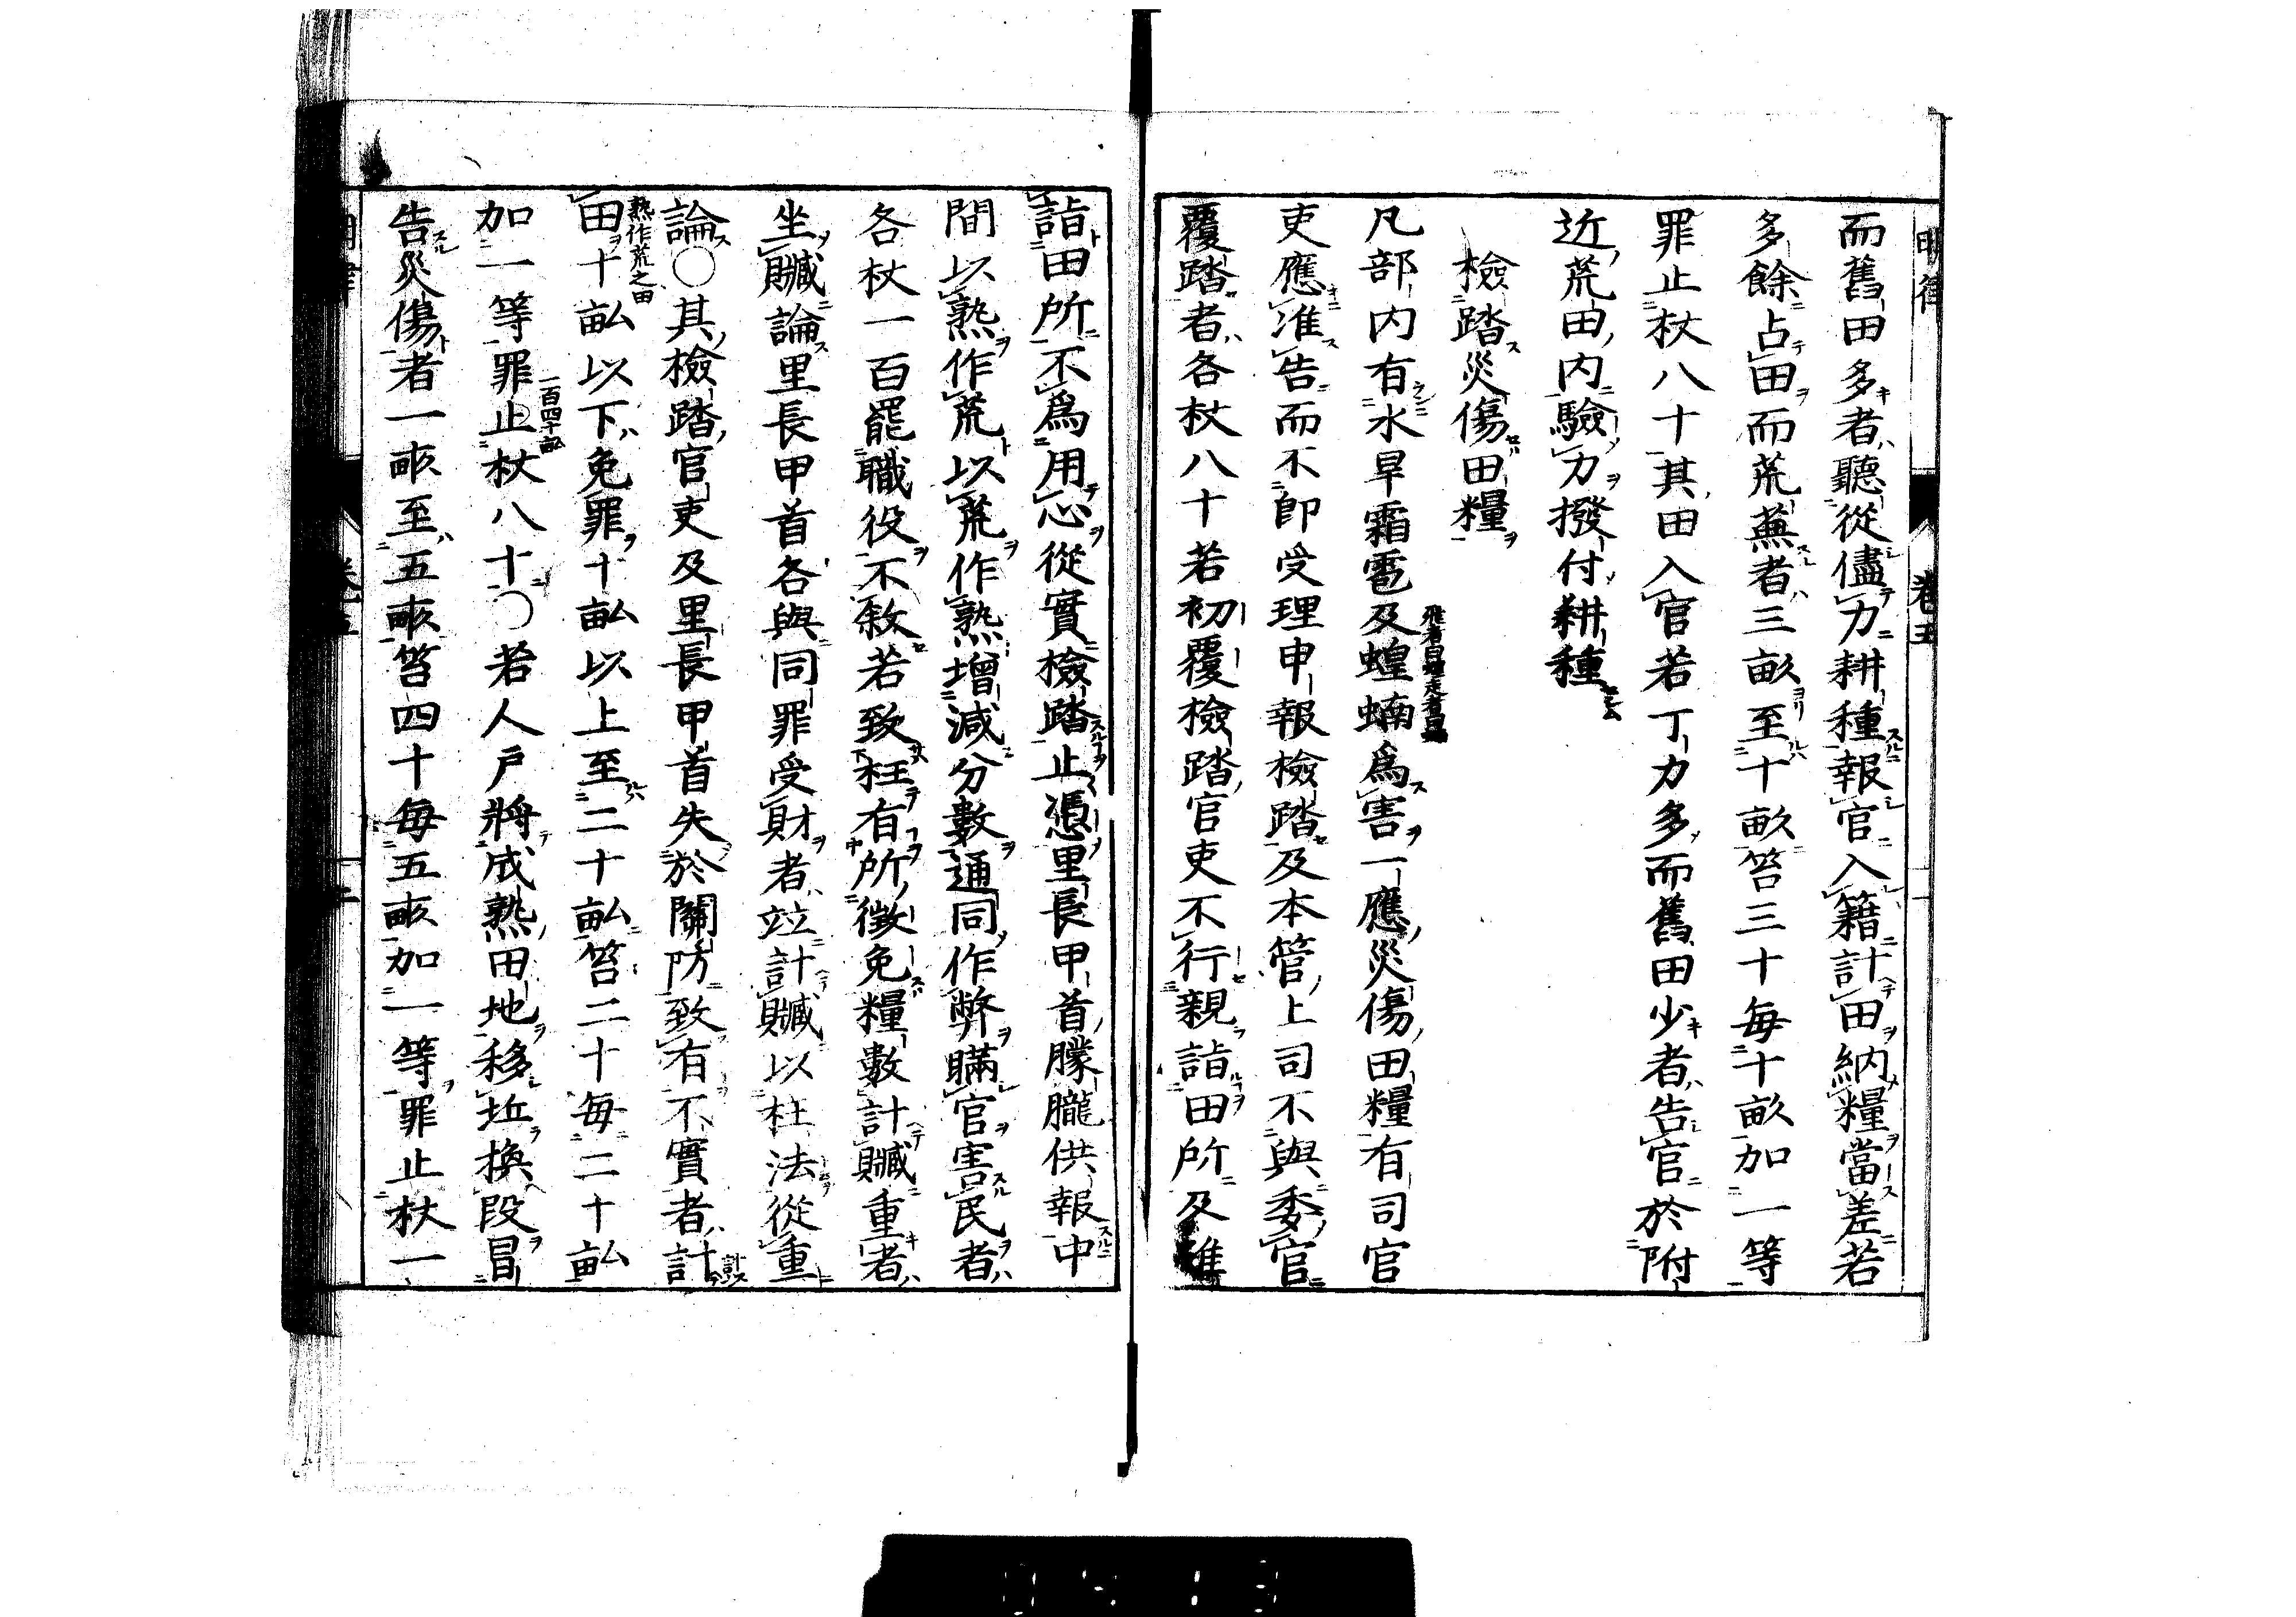 明律 卷五
而舊田多者聽從儘力耕種報官入籍計田納糧當差若
多餘占田而荒蕪者三畝至十畝笞三十每十畝加一等
罪止杖八十其田入官若丁力多而舊田少者告官於附
近荒田内驗力撥付耕種
檢踏災傷田糧
凡部内有水旱霜雹及蝗蝻爲害一應災傷田糧有司官
吏應准告而不即受理申報檢踏及本管上司不與委官
覆踏者各杖八十若初覆檢踏官吏不行親詣田所及雖
詣田所不爲用心從實檢踏止憑里長甲首朦朧供報中
間以熟作荒以荒作熟增減分數通同作弊瞞官害民者
各杖一百罷職役不敘若致枉有所徴免糧數計贓重者
坐贓論里長甲首各與同罪受財者竝計贓以枉法從重
論〇其檢踏官吏及里長甲首失於關防致有不實者計
熟作荒之田
田十畝以下免罪十畝以上至二十畝笞二十每二十畝
一百四十畝
加一等罪止杖八十〇若人戸將成熟田地移坵換段冒
告災傷者一畝至五畝笞四十每五畝加一等罪止杖一